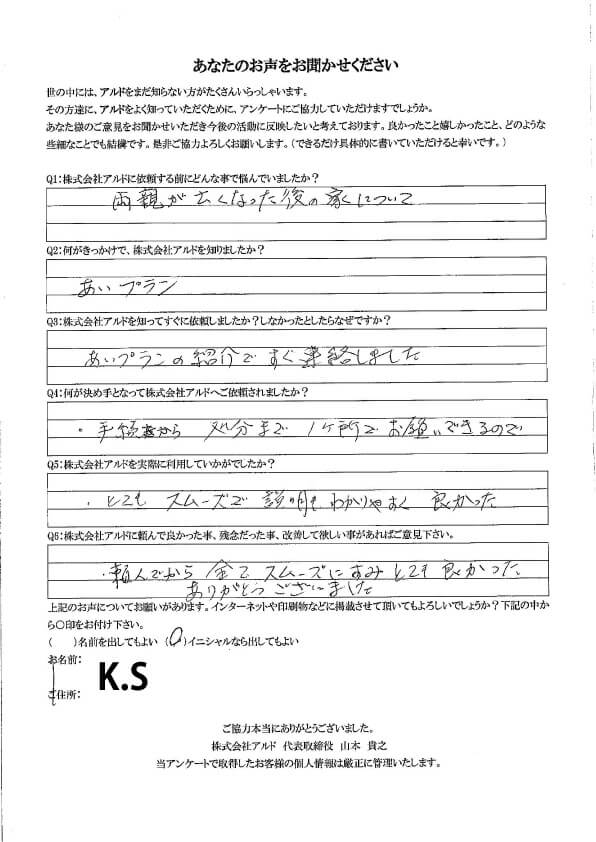 あなたのお声をお聞かせください
世の中には、アルドをまだ知らない方がたくさんいらっしゃいます。
その方達に、アルドをよく知っていただくために、アンケートにご協力していただけますでしょうか。
あなた様のご意見をお聞かせいただき今後の活動に反映したいと考えております。良かったこと嬉しかったこと、どのような
些細なことでも結構です。是非ご協力よろしくお願いします。（できるだけ具体的に書いていただけると幸いです。）
Q1：株式会社アルドに依頼する前にどんな事で悩んでいましたか？
両親が亡くなった後の家について
Q2：何がきっかけで、株式会社アルドを知りましたか？
あいプラン
Q3：株式会社アルドを知ってすぐに依頼しましたか？しなかったとしたらなぜですか？
あいプランの紹介ですぐ連絡しました
Q4：何が決め手となって株式会社アルドへご依頼されましたか？
・手続きから 処分まで 1ヶ所でお願いできるので
Q5：株式会社アルドを実際に利用していかがでしたか？
・とても スムーズで 説明もわかりやすく 良かった
Q6：株式会社アルドに頼んで良かった事、残念だった事、改善して欲しい事があればご意見下さい。
・頼んでから 全て スムーズにすみとても良かった
ありがとうございました
上記のお声についてお願いがあります。インターネットや印刷物などに掲載させて頂いてもよろしいでしょうか？下記の中か
ら〇印をお付け下さい。
（　）名前を出してもよい （〇）イニシャルなら出してもよい
お名前：
K.S
ご住所：
ご協力本当にありがとうございました。
株式会社アルド 代表取締役 山本 貴之
当アンケートで取得したお客様の個人情報は厳正に管理いたします。